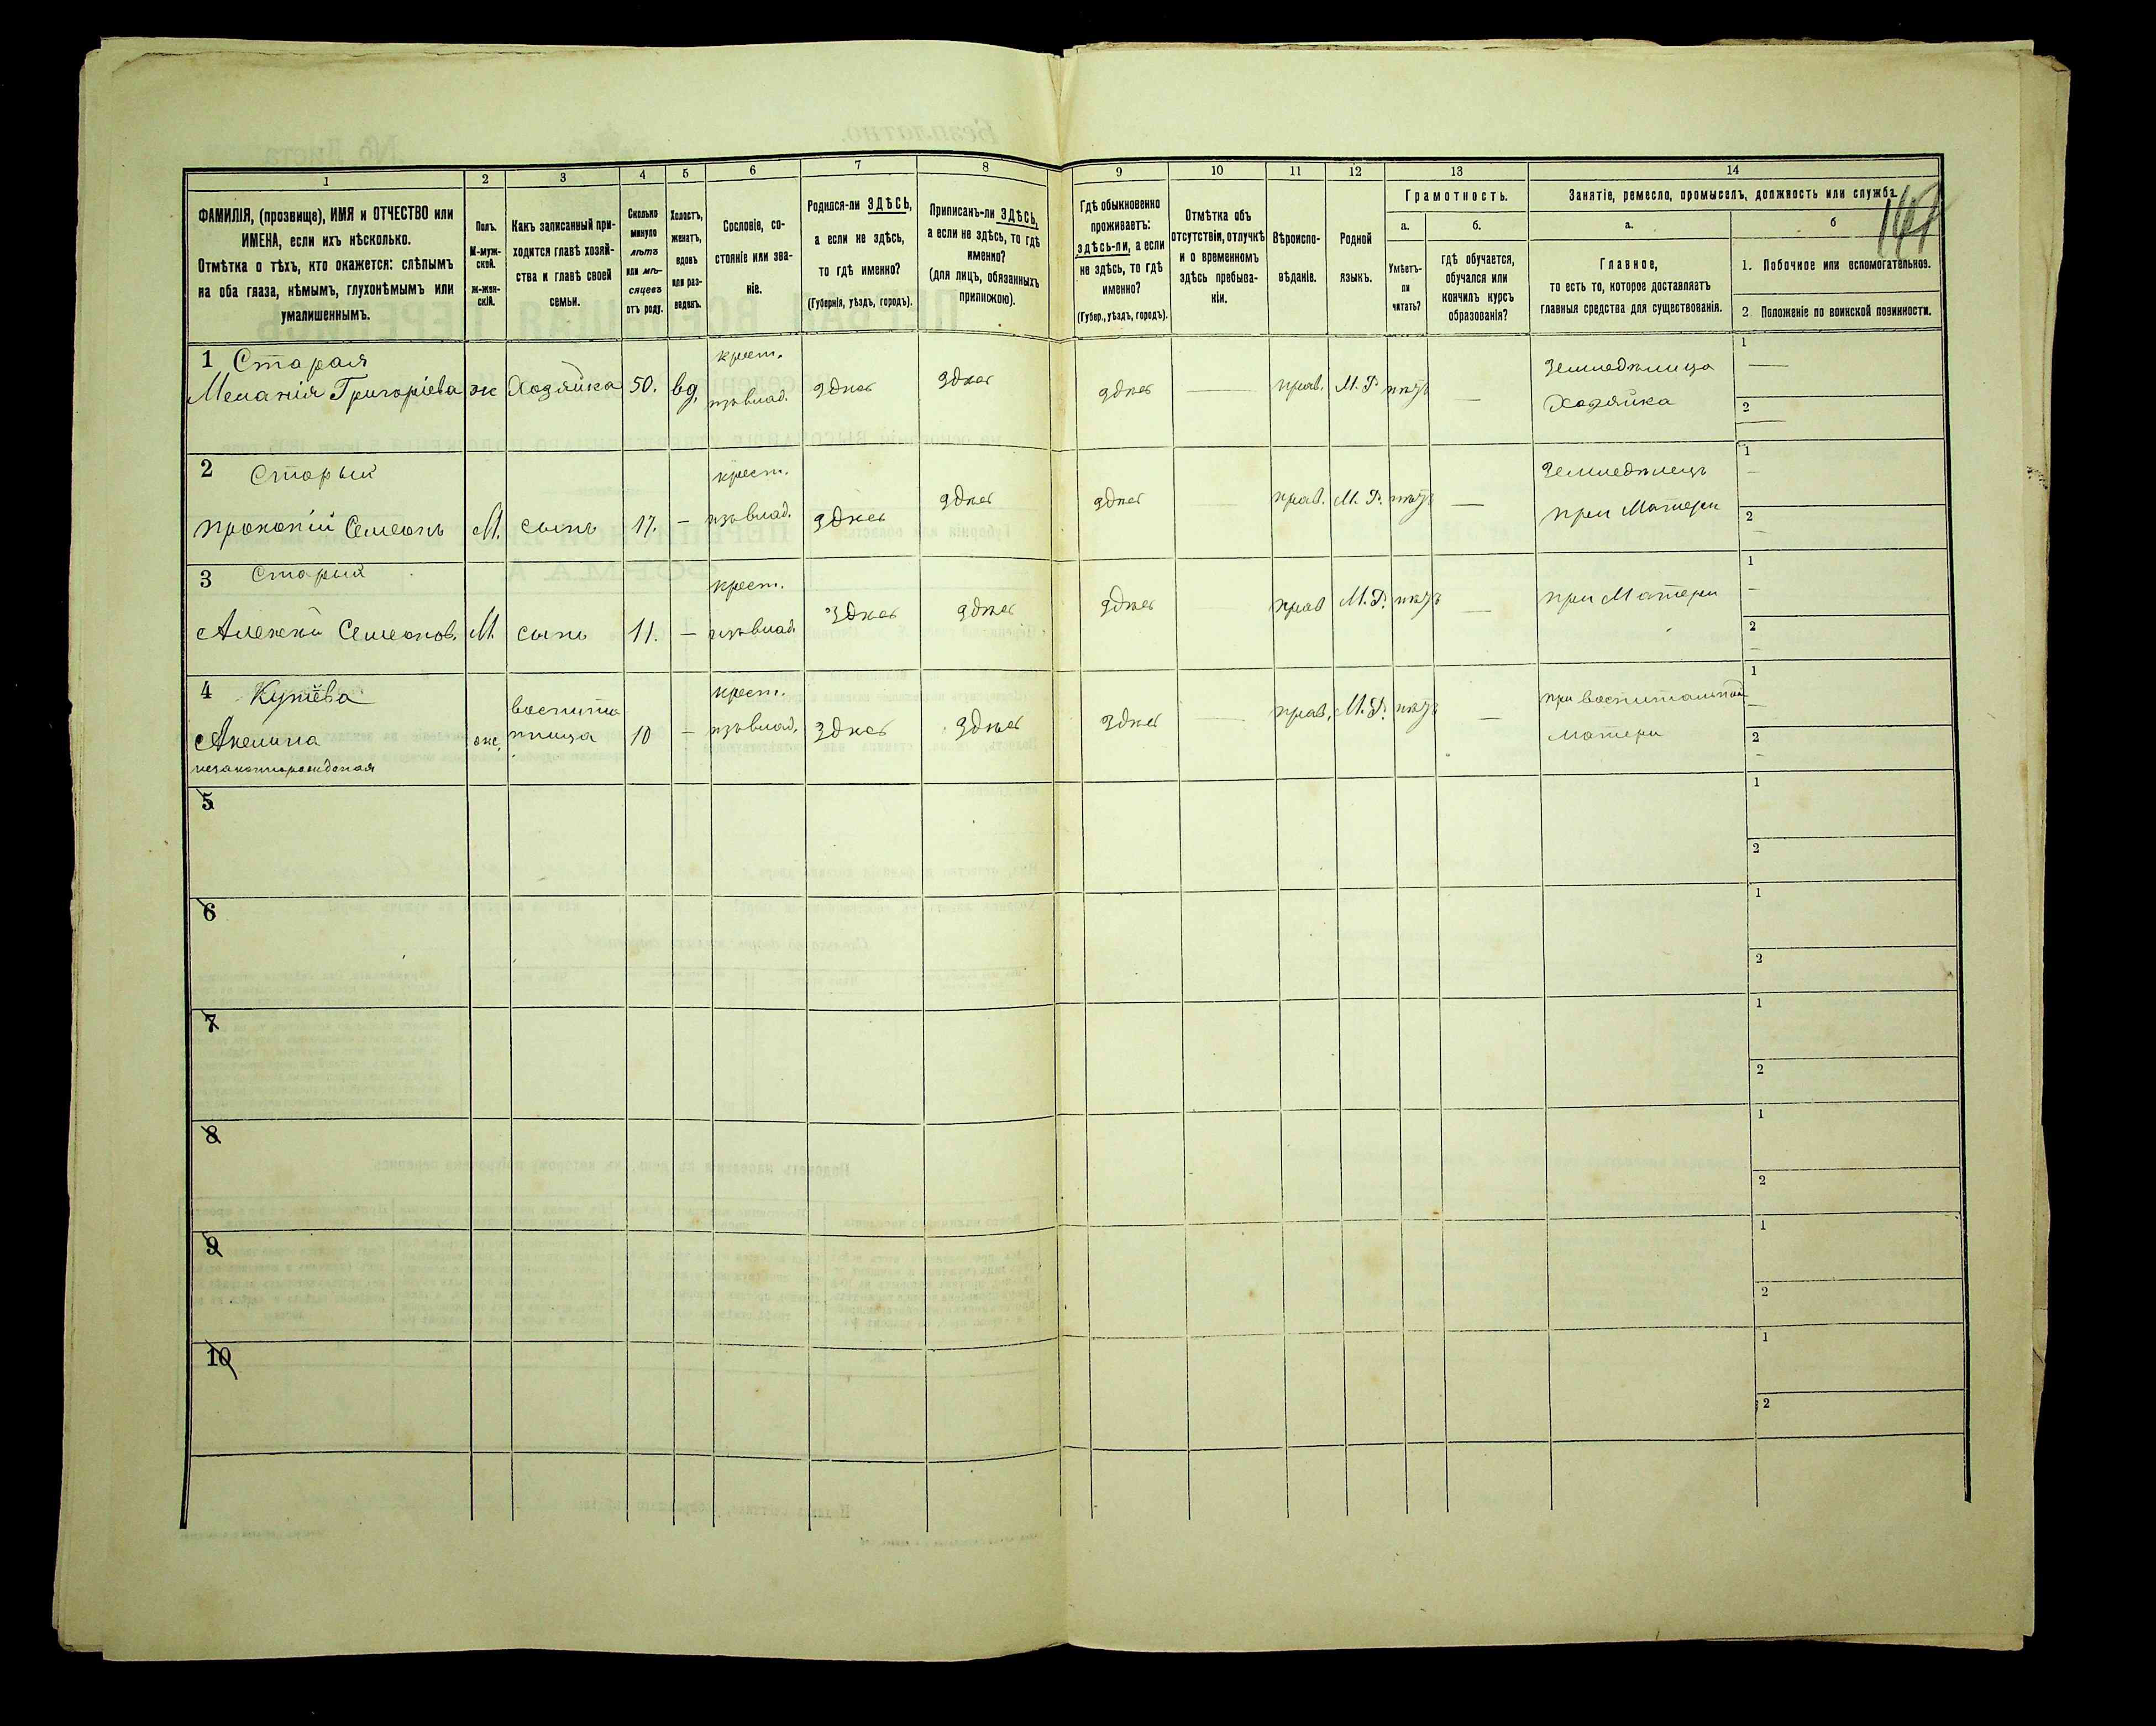 1 2 3 4 5 6 7 8 9 10 11 12 13 14
ФАМИЛІЯ, (прозвище), ИМЯ и ОТЧЕСТВО или ИМЕНА, если ихъ нѣсколько.
Отмѣтка о тѣхъ, кто окажется: слѣпымъ на оба глаза, нѣмымъ, глухонѣмымъ или умалишеннымъ.
Полъ. М-муж-ской. ж-жен-скій.
Какъ записанный при-ходится главѣ хозяй-ства и главѣ своей семьи.
Сколько минуло лѣтъ или мѣ-сяцевъ отъ роду.
Холостъ, женатъ, вдовъ или раз-веденъ.
Сословіе, со-стояніе или зва-ніе.
Родился-ли ЗДѢСЬ, а если не здѣсь, то гдѣ именно?
(Губернія, уѣздъ, городъ).
Приписанъ-ли ЗДѢСЬ, а если не здѣсь, то гдѣ именно?
(для лицъ, обязанныхъ припискою).
Гдѣ обыкновенно проживаетъ: здѣсь-ли, а если не здѣсь, то гдѣ именно?
(Губер., уѣздъ, городъ).
Отмѣтка объ отсутствіи, отлучкѣ и о временномъ здѣсь пребыва-ніи.
Вѣроиспо-вѣданіе.
Родной языкъ.
Грамотность.
а. Умѣетъ-ли читать?
б. гдѣ обучается, обучался или кончилъ курсъ образованія?
Занятіе, ремесло, промыселъ, должность или служба.
а. Главное, то есть то, которое доставляетъ главныя средства для существованія.
б
1. Побочное или вспомогательное.
2. Положеніе по воинской повинности.
1 Старая крест. Земледѣлица 1
Меланія Григоріева ж Хозяйка 50. вд. изъ влад. здѣсь здѣсь здѣсь — прав. М.Р. нѣтъ — Хозяйка 2
2 Старый крест. Земледѣлецъ 1
Прокопій Семеонъ М. сынъ 17. — изъ влад. здѣсь здѣсь здѣсь — прав. М.Р. нѣтъ — при Матери 2
3 Старый крест. 1
Алексѣй Семеонов. М. сынъ 11. — изъ влад. здѣсь здѣсь здѣсь — прав М.Р. нѣтъ — при Матери 2
4 воспита крест. при воспитальной 1
Акелина ж. нница 10 — изъ влад. здѣсь здѣсь здѣсь — прав. М.Р. нѣтъ — матери 2
незаконнорожденая
5 1
2
6 1
2
7 1
2
8 1
2
9 1
2
10 1
2